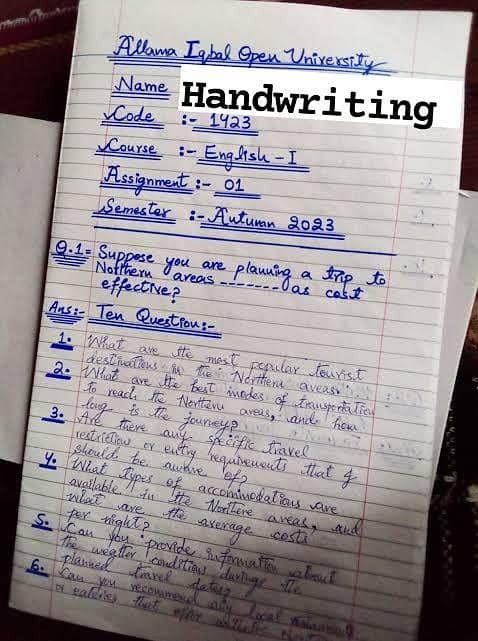 Allama Iqbal Open University
Name Handwriting
Code :- 1423
Course :- English - I
Assignment :- 01
Semester :- Autumn 2023
Q.1= Suppose you are planning a trip to
Northern areas ------- as cost
effective?
Ans:- Ten Question:-
1. What are the most popular tourist
destinations in the Northern areas.
2. What are the best modes of transportation
to reach the Northern areas, and how
long is the journey?
3. Are there any specific travel
restriction or entry requirements that I
should be aware of?
4. What types of accommodations are
available in the Northern areas, and
what are the average costs
per night?
5. Can you provide information about
the weather conditions during the
planned travel dates?
6. Can you recommend any local restaurants
or eateries that offer authentic